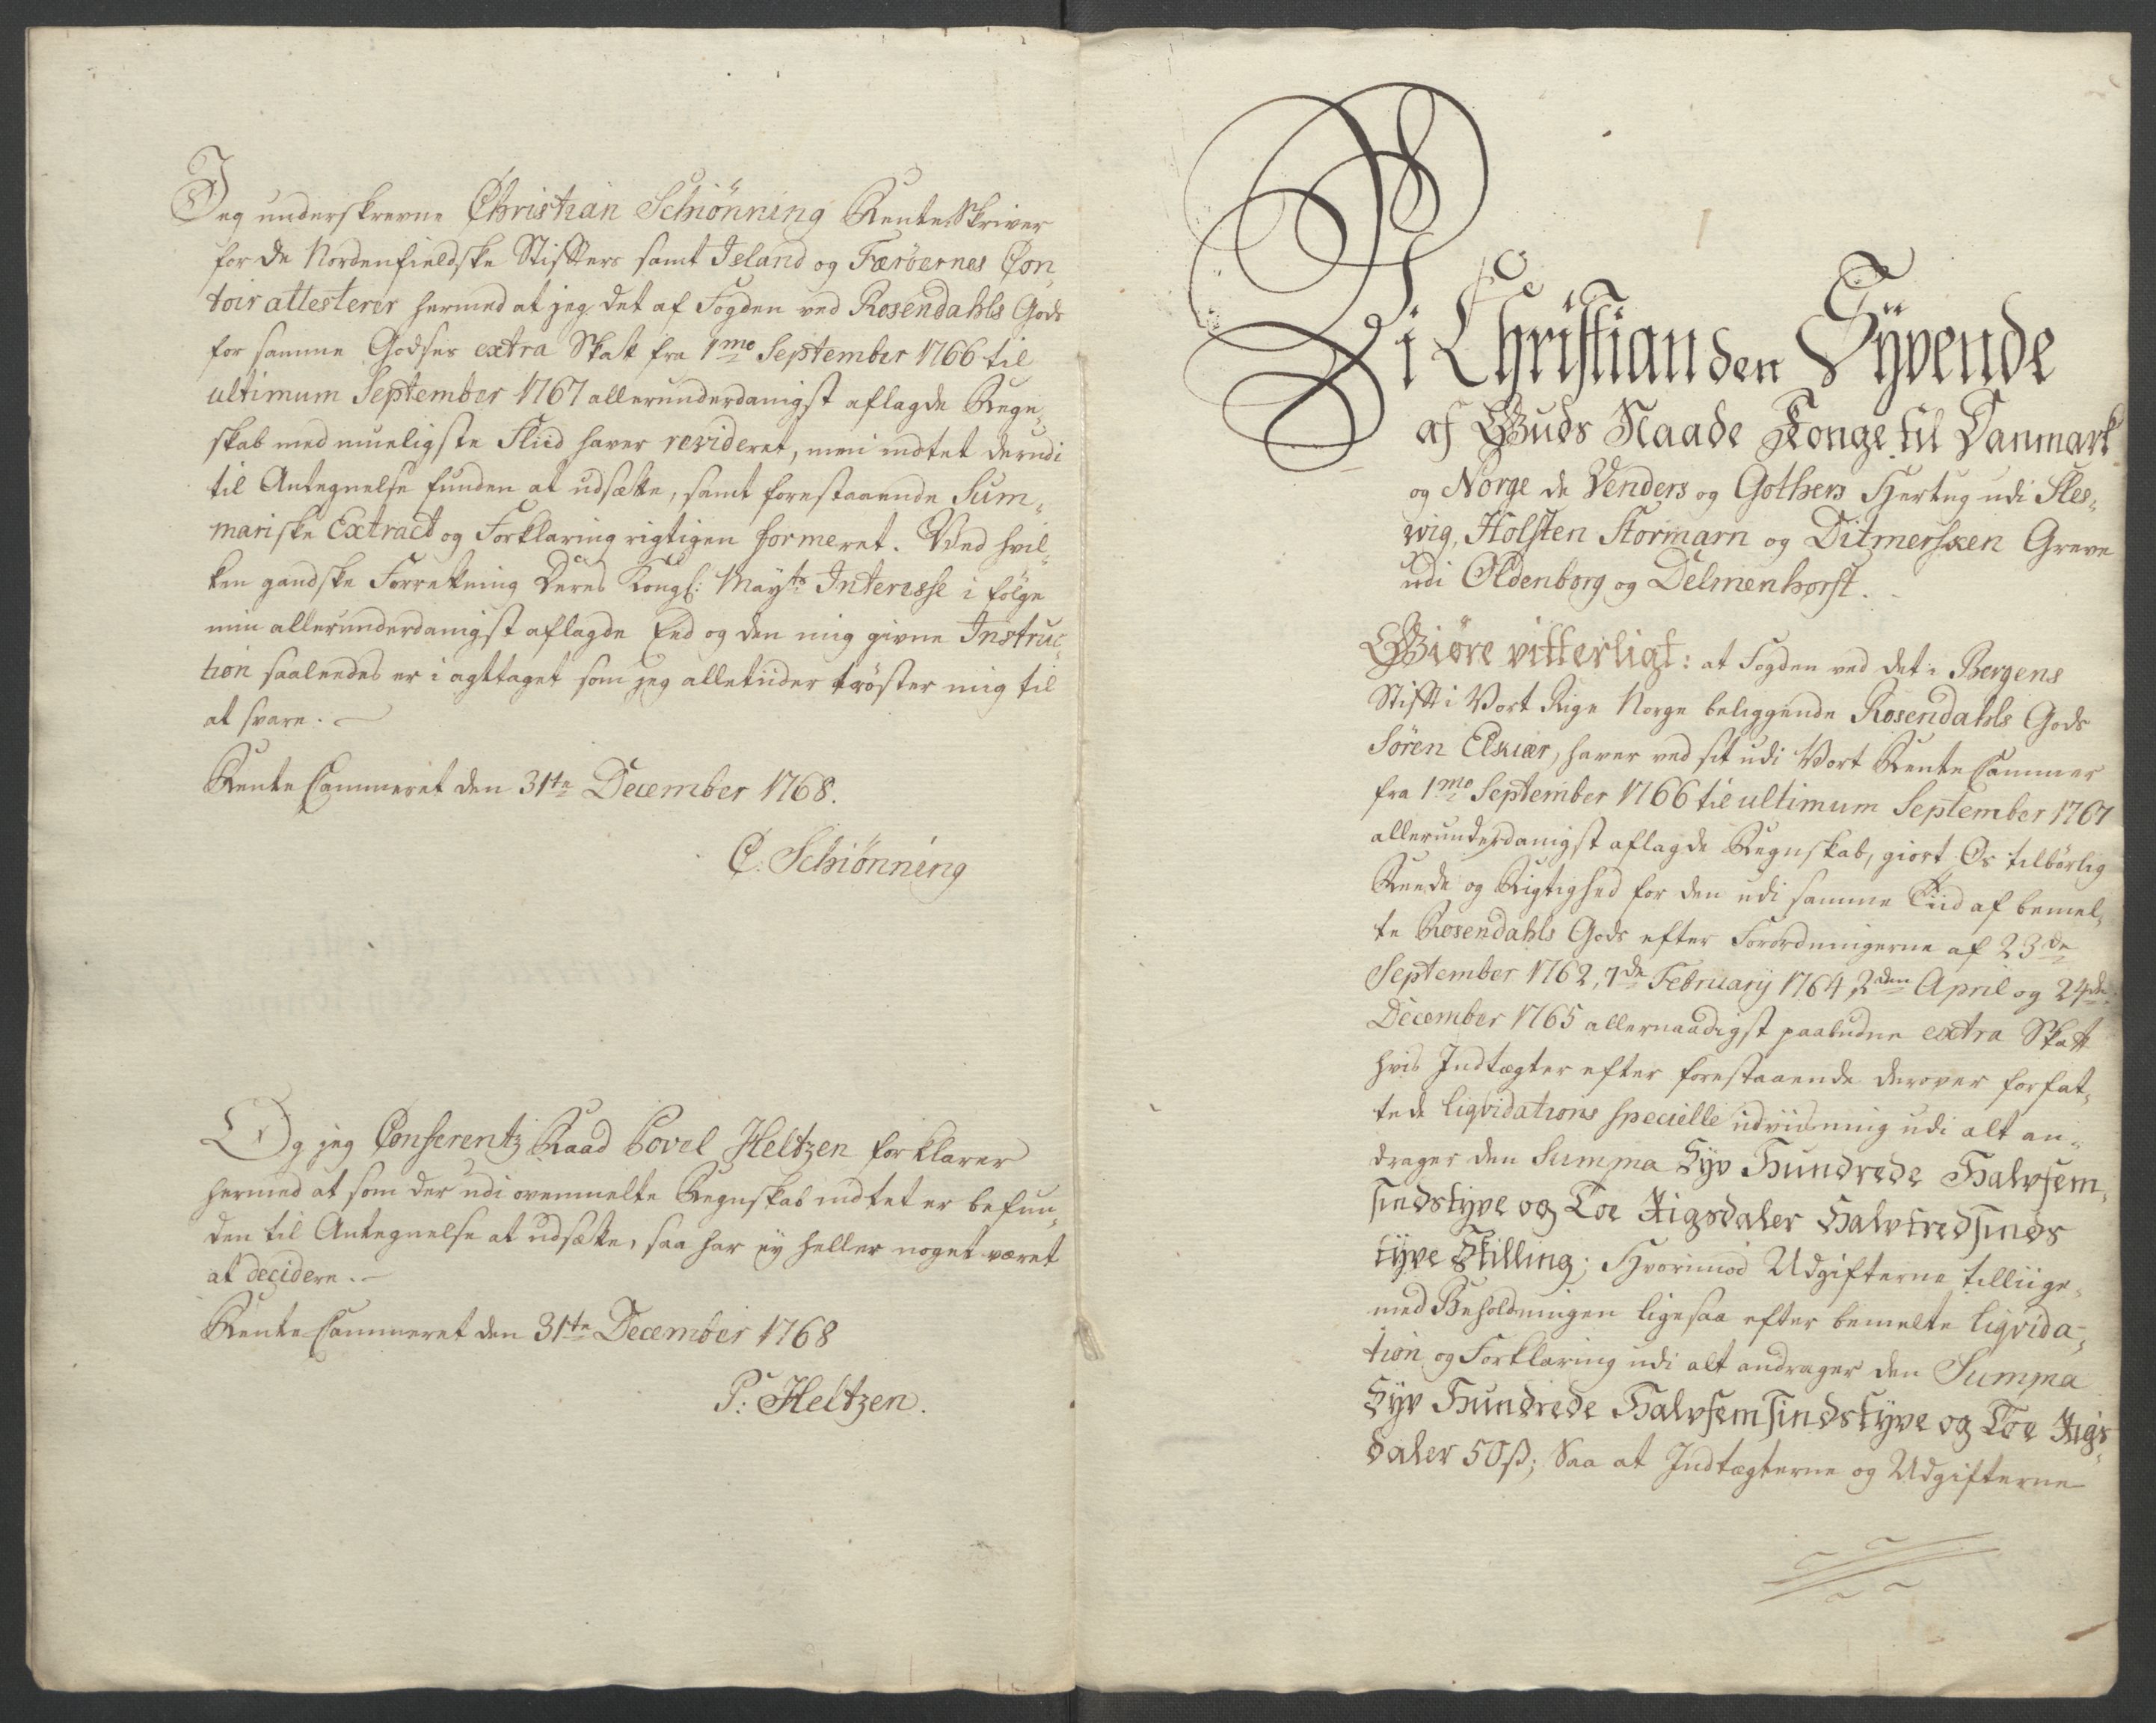 Jeg underskrevne Christian Schiönning RenteSkriver
for de Nordenfieldske Stifters samt Island og Færöernes Con„
toir attesterer hermed at jeg det af Fogden ved Rosendahls Gods
for samme Godses extra Skatt fra 1mo September 1766 til
ultimum September 1767 allerunderdanigst aflagde Regn„
skab med mueligste Fliid haver revideret, men intet derudi
til Antegnelse funden at udsætte, samt forestaaende Sum„
mariske Extract og Forklaring rigtigen formeret. Ved hvil„
ken gandske Forretning Deres Kongl: Mayts Interesse i følge
min allerunderdanigst aflagde Eed og den mig givne Instruc„
tion saaledes er i agttaget som jeg alletiider tröster mig til
at svare.
Rente Cammeret den 31te December 1768.
C. Schiönning
Og jeg Conferentz Raad Povel Heltzen forklarer
hermed at som der udi ovenmelte Regnskab intet er befun„
den til Antegnelse at udsætte, saa har ey heller noget været
at decidere.
Rente Cammeret den 31te December 1768
P: Heltzen.
Vi Christian den Syvende
af Guds Naade Konge til Danmark
og Norge de Venders og Gothers Hertug udi Sles„
wig, Holsten Stormarn og Ditmersken Greve
udi Oldenborg og Delmenhorst.
Giöre vitterligt: at Fogden ved det i Bergens
Stift i Vort Rige Norge beliggende Rosendahls Gods
Sören Elskiær, haver ved sit udi Vort Rente Cammer
fra 1mo September 1766 til ultimum September 1767
allerunderdanigst aflagde Regnskab, giort Os tilbörlig
Reede og Rigtighed for den udi samme Tiid af bemel„
te Rosendahls Gods efter Forordningerne af 23de
September 1762, 7de February 1764, 2den April og 24de
December 1765 allernaadigst paabudne extra Skatt
hvis Indtægter efter forestaaende derover forfat„
tede liqvidations specielle udviisning udi alt an„
drager den Summa Syv Hundrede Halvfem„
sindstyve og Toe Rigsdaler Halvtredsinds
tyve Skilling; Hvorimod Udgifterne tilliige„
med Beholdningen ligesaa efter bemelte liqvida„
tion og Forklaring udi alt andrager den Summa
Syv Hundrede Halvfemsindstyve og Toe Rigs„
daler 50ß; Saa at Indtægterne og Udgifterne